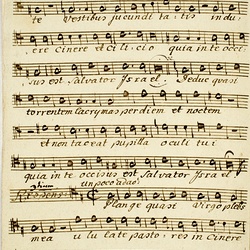 te Vestibus jucundita: tis indu
ere cinere et cilicio quia in te occi
sus est Salvator Israel. Deduc quasi
torrentem lacrymas per diem et noctem
et non taceat pupilla oculi tui
quia in te occisus est Salvator Israel
un poco
Plange quasi Virgo plebs
mea ululate pasto: res in cinere